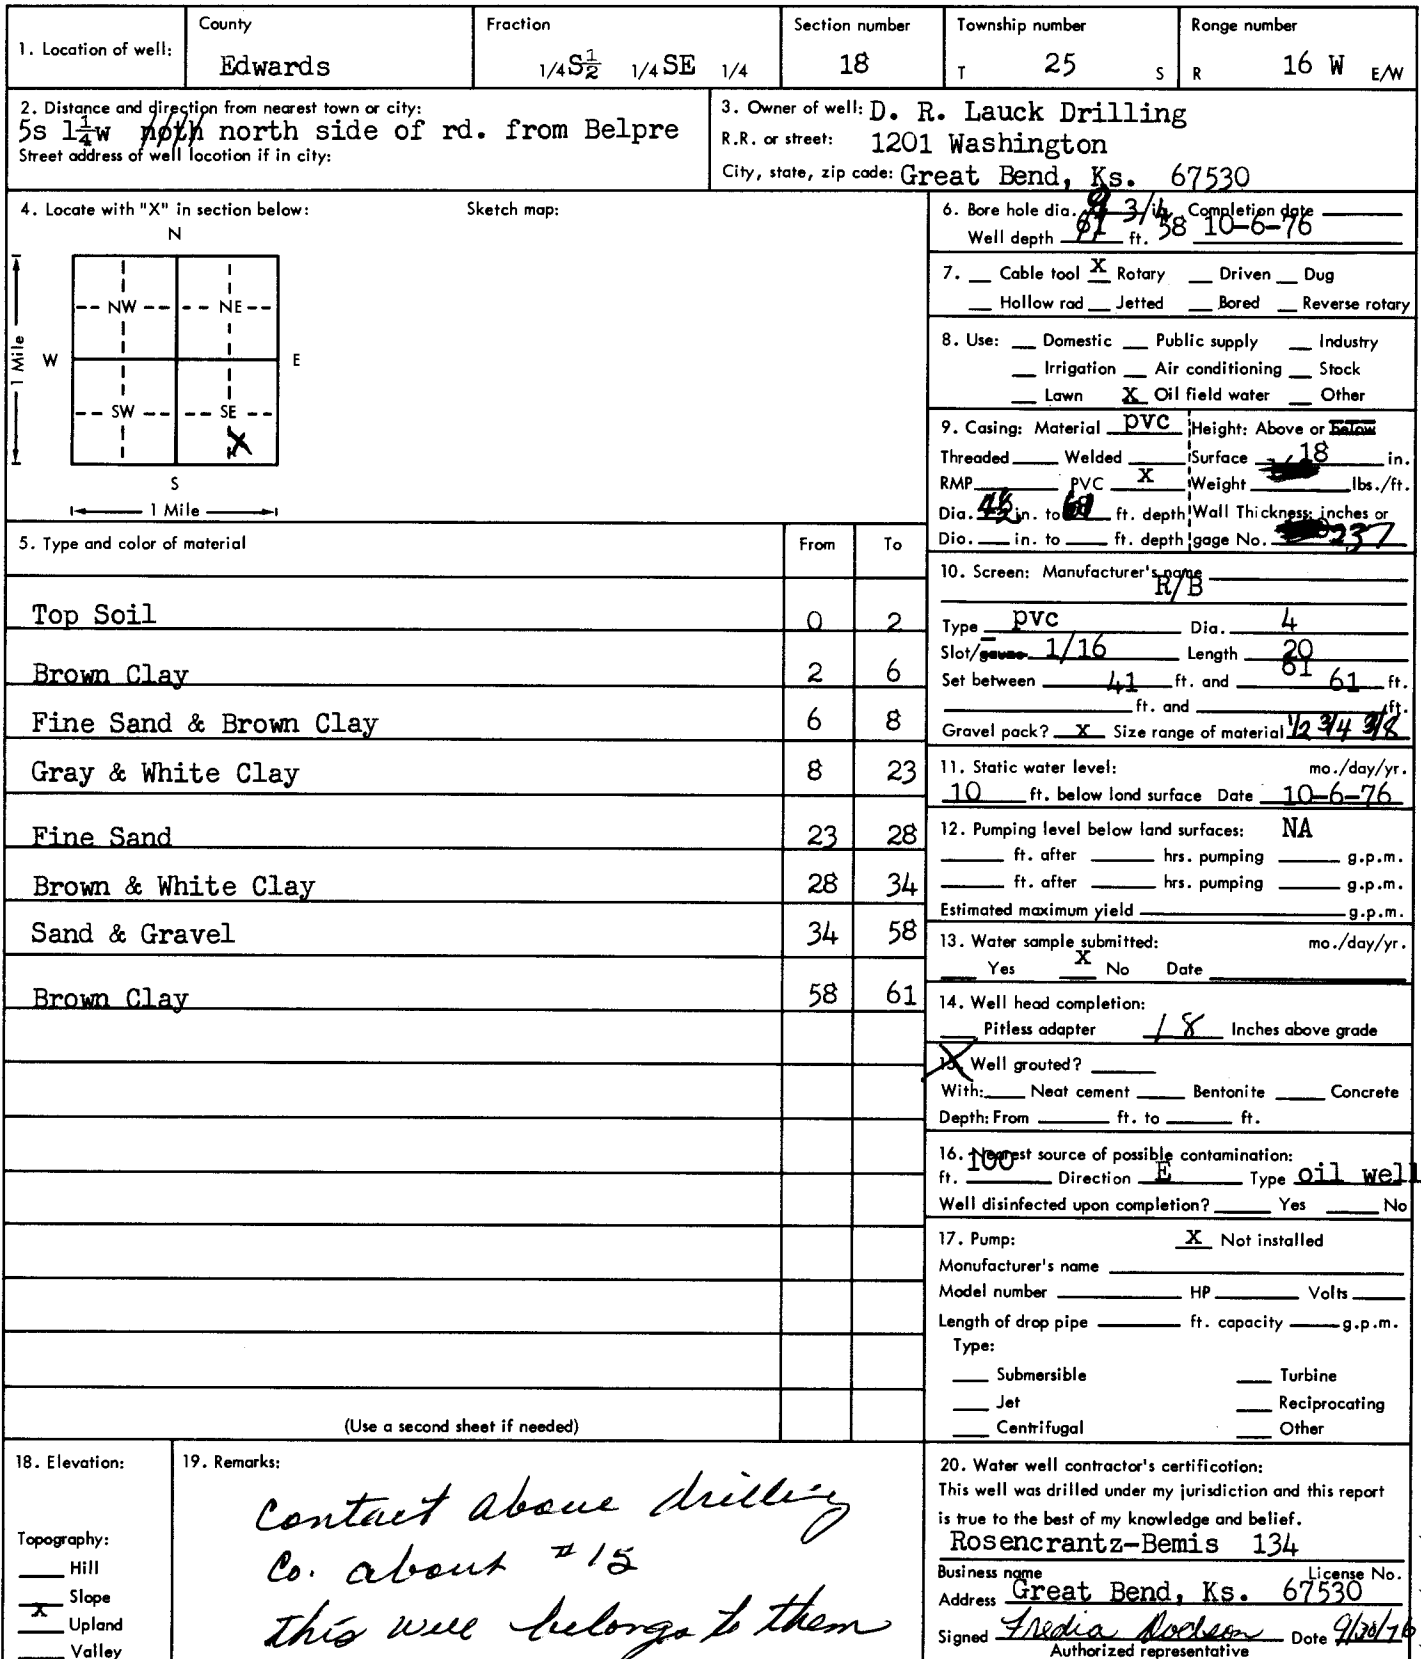 1. Location of well: County Edwards Fraction 1/4 S½ 1/4 SE 1/4 Section number 18 Township number T 25 S Range number R 16 W E/W
2. Distance and direction from nearest town or city:
5s 1¼w north side of rd. from Belpre
Street address of well location if in city:
3. Owner of well: D. R. Lauck Drilling
R.R. or street: 1201 Washington
City, state, zip code: Great Bend, Ks. 67530
4. Locate with "X" in section below: Sketch map:
N
NW NE
W E
1 Mile
SW SE
X
S
1 Mile
5. Type and color of material From To
Top Soil 0 2
Brown Clay 2 6
Fine Sand & Brown Clay 6 8
Gray & White Clay 8 23
Fine Sand 23 28
Brown & White Clay 28 34
Sand & Gravel 34 58
Brown Clay 58 61
(Use a second sheet if needed)
6. Bore hole dia. 9 3/4 in. Completion date
Well depth 61 ft. 58 10-6-76
7. Cable tool X Rotary Driven Dug
Hollow rod Jetted Bored Reverse rotary
8. Use: Domestic Public supply Industry
Irrigation Air conditioning Stock
Lawn X Oil field water Other
9. Casing: Material pvc Height: Above or below
Threaded Welded Surface 18 in.
RMP PVC X Weight lbs./ft.
Dia. in. to ft. depth Wall Thickness: inches or
Dia. in. to ft. depth gage No. 237
10. Screen: Manufacturer's name
R/B
Type pvc Dia. 4
Slot/gauze 1/16 Length 20
61
Set between 41 ft. and 61 ft.
ft. and ft.
Gravel pack? X Size range of material 1/2 3/4 3/8
11. Static water level: mo./day/yr.
10 ft. below land surface Date 10-6-76
12. Pumping level below land surfaces: NA
ft. after hrs. pumping g.p.m.
ft. after hrs. pumping g.p.m.
Estimated maximum yield g.p.m.
13. Water sample submitted: mo./day/yr.
Yes X No Date
14. Well head completion:
Pitless adapter 18 Inches above grade
X 15. Well grouted?
With: Neat cement Bentonite Concrete
Depth: From ft. to ft.
16. Nearest source of possible contamination:
ft. 100 Direction E Type oil well
Well disinfected upon completion? Yes No
17. Pump: X Not installed
Manufacturer's name
Model number HP Volts
Length of drop pipe ft. capacity g.p.m.
Type:
Submersible Turbine
Jet Reciprocating
Centrifugal Other
18. Elevation:
Topography:
Hill
Slope
X Upland
Valley
19. Remarks:
Contact above drilling
Co. about #15
this well belongs to them
20. Water well contractor's certification:
This well was drilled under my jurisdiction and this report
is true to the best of my knowledge and belief.
Rosencrantz-Bemis 134
Business name License No.
Address Great Bend, Ks. 67530
Signed Fredia Dodson Date 9/30/76
Authorized representative